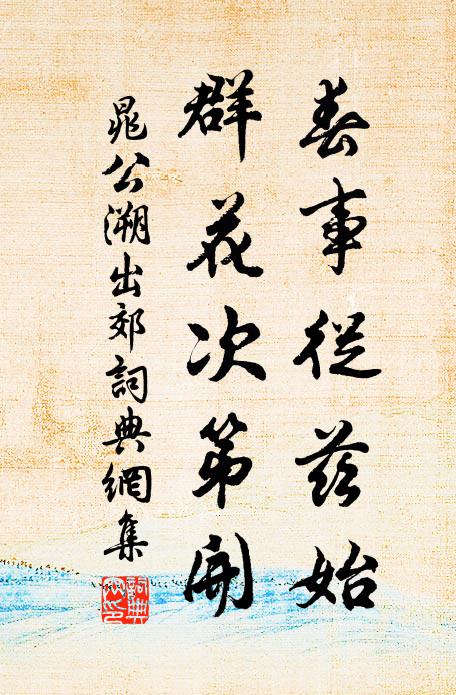 春事從茲始
群花次第開
晁公溯出郊詞典網集